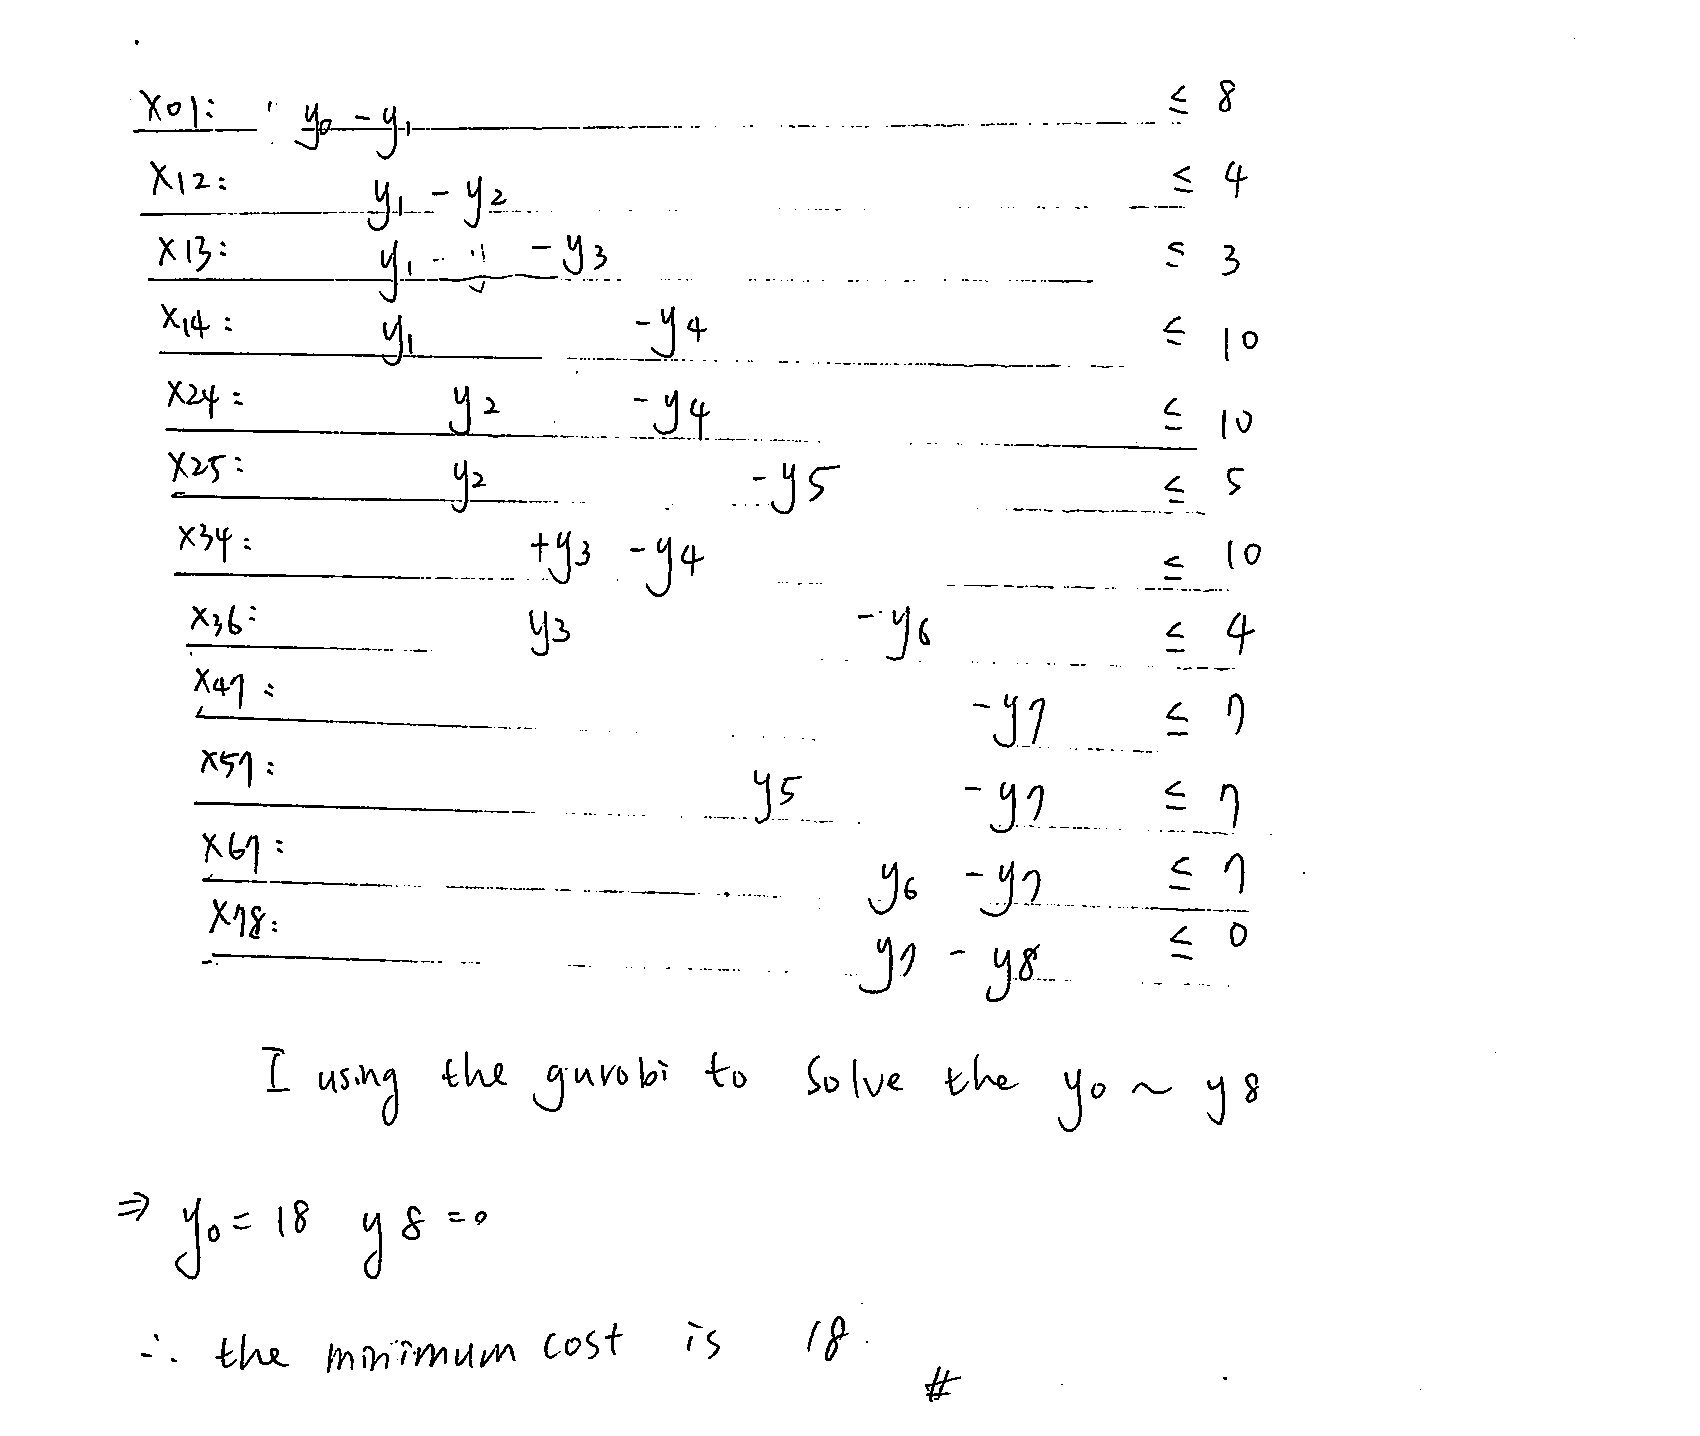 x01: y0 - y1 ≤ 8
x12: y1 - y2 ≤ 4
x13: y1 - y3 ≤ 3
x14: y1 - y4 ≤ 10
x24: y2 - y4 ≤ 10
x25: y2 - y5 ≤ 5
x34: +y3 - y4 ≤ 10
x36: y3 - y6 ≤ 4
x47: - y7 ≤ 7
x57: y5 - y7 ≤ 7
x67: y6 - y7 ≤ 7
x78: y7 - y8 ≤ 0
I using the gurobi to solve the y0 ~ y8
⇒ y0 = 18 y8 = 0
∴ the minimum cost is 18.
#